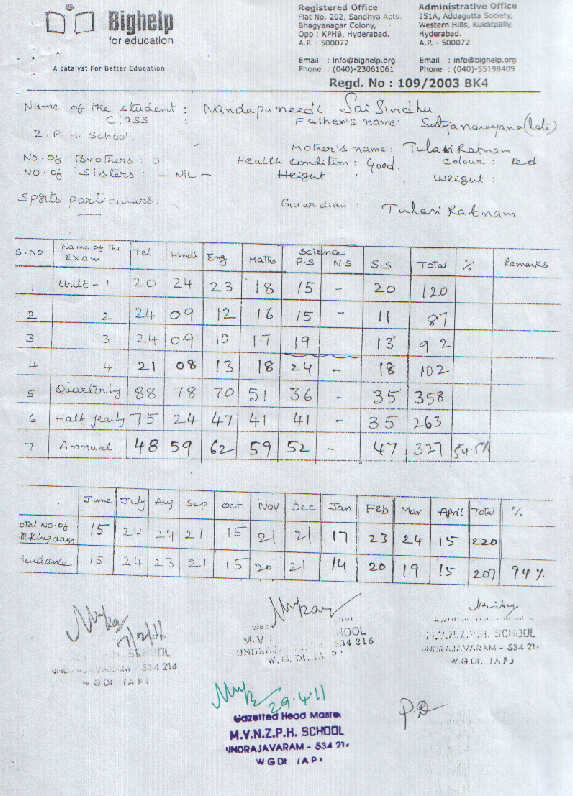 Bighelp
for education
A catalyst For Better Education
Registered Office
Flat No. 202, Sandhya Apts.
Bhagyanagar Colony,
Opp : KPHB, Hyderabad.
A.P. - 500072
Email : info@bighelp.org
Phone : (040)-23061061
Administrative Office
151A, Addagutta Society,
Western Hills, Kukatpally,
Hyderabad.
A.P. - 500072
Email : info@bighelp.org
Phone : (040)-55198409
Regd. No : 109/2003 BK4
Name of the student : Nandapuneedi Sai Sindhu
Class : Father's name : Satyanarayana (late)
Z.P.H School
Mother's name : Tulasi Ratnam
No. of Brothers : Health condition : Good. colour : Red
No. of Sisters : - NIL - Height : Weight :
Sports particulars. Guardian : Tulasi Ratnam
S.no Name of the Exam Tel Hindi Eng Maths Science P.S N.S S.S Total % Remarks
1 Unit - 1 20 24 23 18 15 - 20 120
2 2 24 09 12 16 15 - 11 87
3 3 24 09 10 17 19 13 92
4 4 21 08 13 18 24 - 18 102
5 Quarterly 88 78 70 51 36 - 35 358
6 Half yearly 75 24 47 41 41 - 35 263
7 Annual 48 59 62 59 52 - 47 327 54.5%
June July Aug Sep Oct Nov Dec Jan Feb Mar April Total %
Total No. of Working days 15 24 21 15 21 21 17 23 24 15 220
15 24 23 21 15 20 21 14 20 19 15 207 94%
SCHOOL
534 216
W.G.Dt. (A.P.)
M.V. SCHOOL
534 216
W.G.Dt.
M.V.N.Z.P.H. SCHOOL
UNDRAJAVARAM - 534 216
W.G.Dt. (A.P.)
29.4.11
Gazetted Head Master
M.V.N.Z.P.H. SCHOOL
UNDRAJAVARAM - 534 216
W.G.Dt. (A.P.)